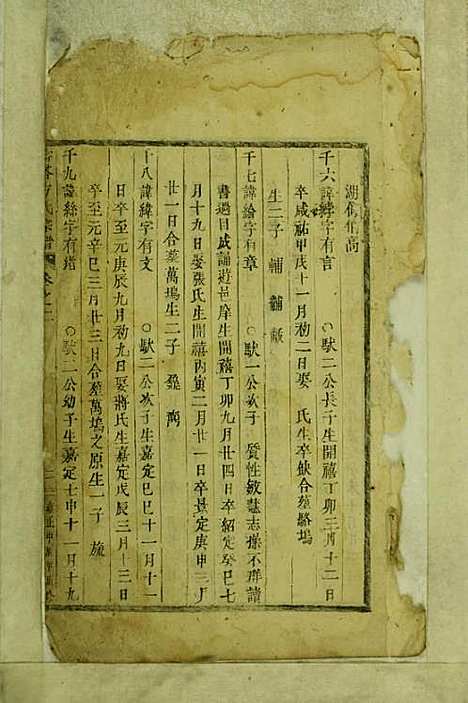 湖儁作高
千六諱縡字有言　〇馱二公長子生開禧丁卯三月十二日
卒咸祐甲戌十一月初二日娶　氏生卒缺合塟駱塢
生二子　輔　黻
千七諱綸字有章　〇馱一公次子　質性敏慧志操不群讀
書過目成誦遊邑庠生開禧丁卯九月廿四日卒紹定癸巳七
月十九日娶張氏生開禧丙寅二月廿一日卒景定庚申三月
廿一日合塟萬塢生二子
十八諱緯字有文　〇馱二公次子生嘉定己巳十一月十一
日卒至元庚辰九月初九日娶將氏生嘉定戊辰三月十三日
卒至元辛巳三月廿三日合塟萬塢之原生一子　旒
千九諱絲字有緒　〇馱二公幼子生嘉定壬申十一月十九
方氏宗譜　卷之二